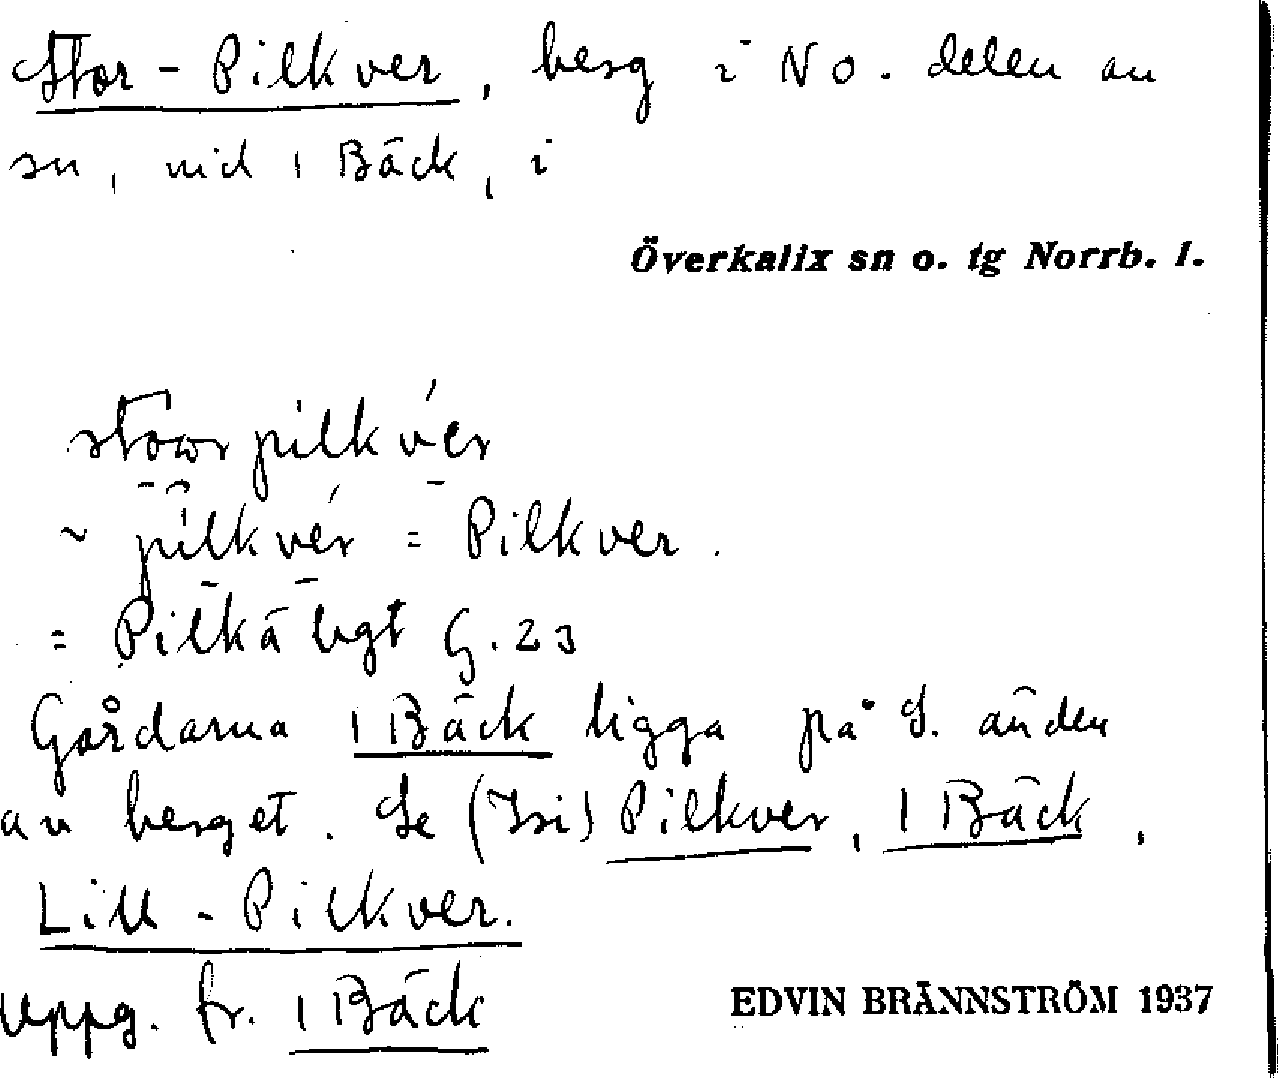 Stor-Pilkver, berg i NO. delen av
sn, vid 1 Bäck, i
Överkalix sn o. tg Norrb. l.
stowr pilkvér
~ pilkvér = Pilkver.
= Pilkä ligt G. 23
Gårdarna 1 Bäck ligga på S. änden
av berget. Se (Isi) Pilkver, 1 Bäck,
Lill-Pilkver.
Uppg. fr. 1 Bäck
EDVIN BRÄNNSTRÖM 1937